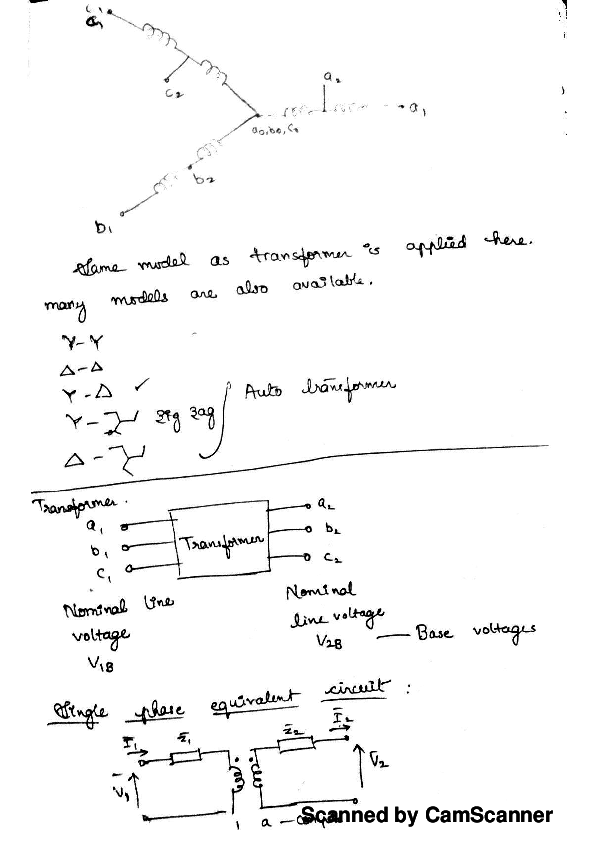 c₁
a₂
c₂
a₁
a₀,b₀,c₀
b₂
b₁
Same model as transformer is applied here.
many models are also available.
Y-Y
Δ-Δ
Y-Δ ✓
Y- zig zag
Auto transformer
Δ-
Transformer.
a₁ a₂
b₁ Transformer b₂
c₁ c₂
Nominal line Nominal
voltage line voltage
V₁B V₂B — Base voltages
Single phase equivalent circuit :
I̅₁ z̅₁ z̅₂ I̅₂
V̅₁ V̅₂
1 a -
Scanned by CamScanner